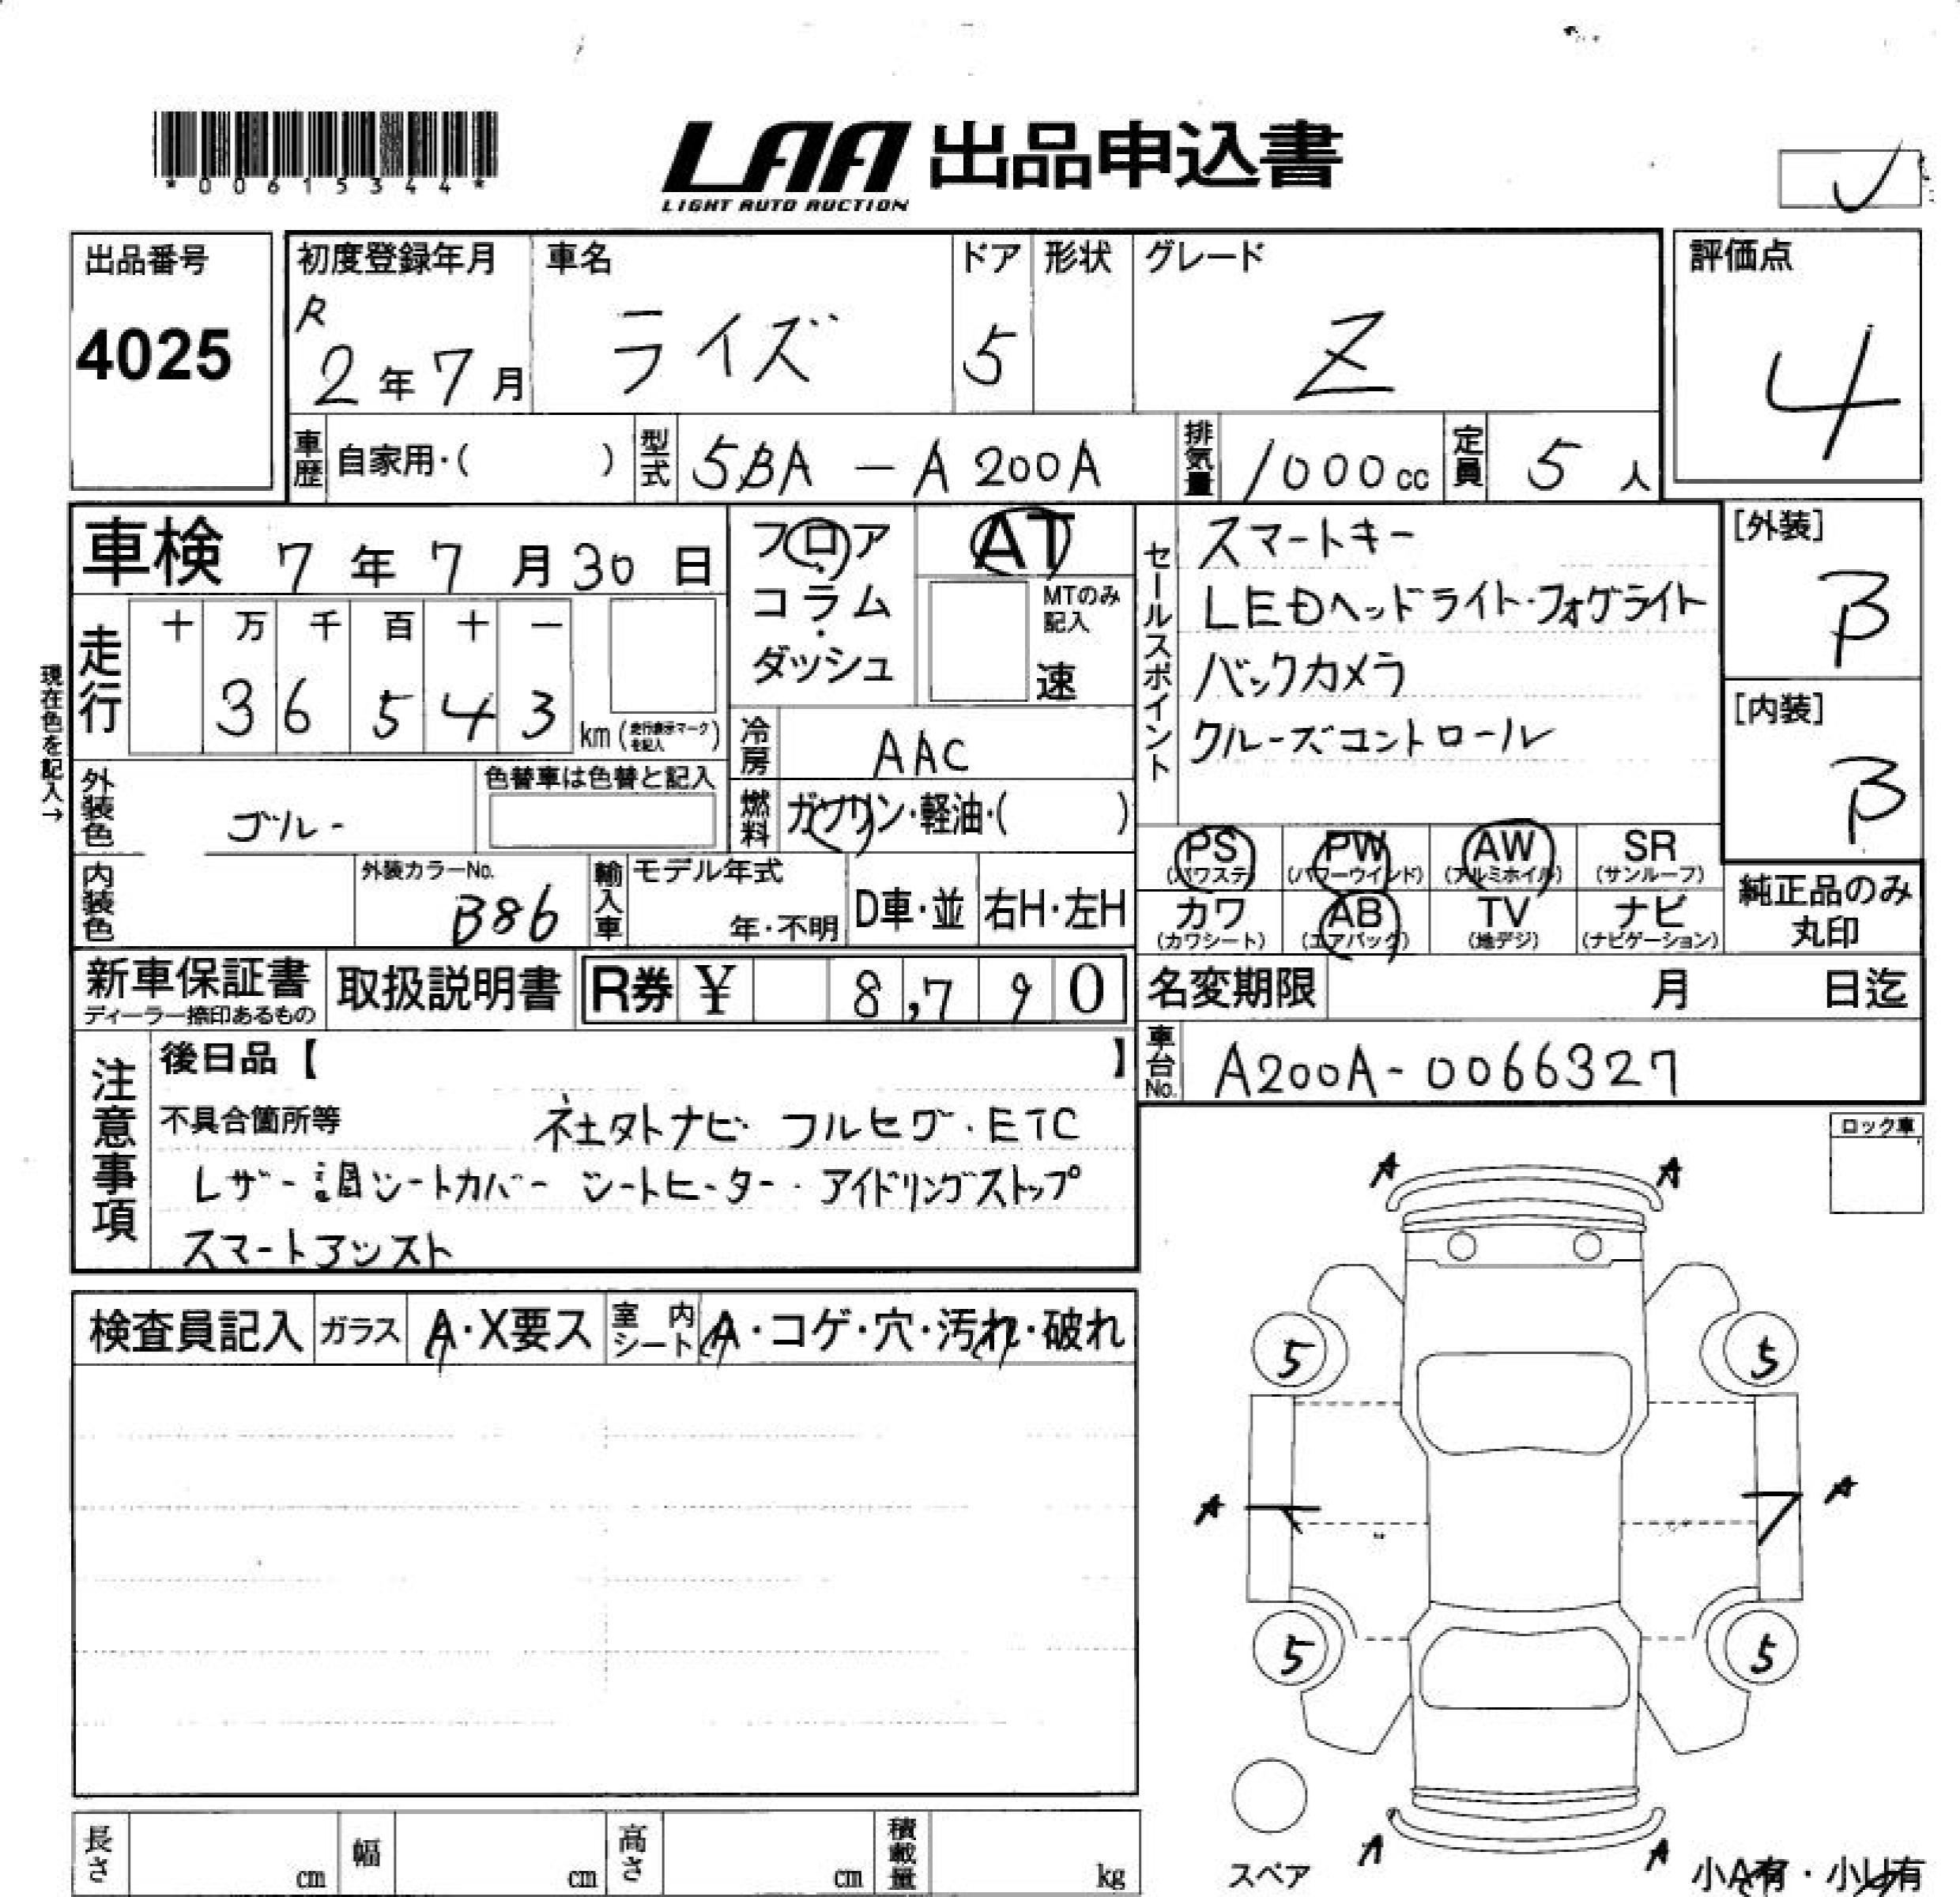 *00615344*
LAA 出品申込書
LIGHT AUTO AUCTION
出品番号
4025
初度登録年月
R
2年7月
車名
ライズ
ドア
5
形状
グレード
Z
評価点
4
車歴 自家用・( )
型式 5BA-A200A
排気量 1000cc
定員 5人
車検 7年7月30日
現在色を記入→
走行
十 万 千 百 十 一
3 6 5 4 3 km(走行表示マークを記入)
フロア・コラム・ダッシュ
AT
MTのみ記入
速
冷房 AAC
燃料 ガソリン・軽油・( )
セールスポイント
スマートキー
LEDヘッドライト・フォグライト
バックカメラ
クルーズコントロール
[外装]
B
[内装]
B
外装色
色替車は色替と記入
内装色
外装カラーNo.
B86
輸入車
モデル年式
年・不明
D車・並
右H・左H
PS (パワステ)
PW (パワーウインド)
AW (アルミホイル)
SR (サンルーフ)
カワ (カワシート)
AB (エアバック)
TV (地デジ)
ナビ (ナビゲーション)
純正品のみ丸印
新車保証書
ディーラー捺印あるもの
取扱説明書
R券 ¥ 8,790
名変期限 月 日迄
車台No. A200A-0066327
注意事項
後日品【 】
不具合箇所等 社外ナビ フルセグ・ETC
レザー調シートカバー シートヒーター・アイドリングストップ
スマートアシスト
ロック車
検査員記入
ガラス A・X要ス
室内シート A・コゲ・穴・汚れ・破れ
A A
5 5
A A
5 5
A A
スペア
小A有・小U有
長さ cm
幅 cm
高さ cm
積載量 kg